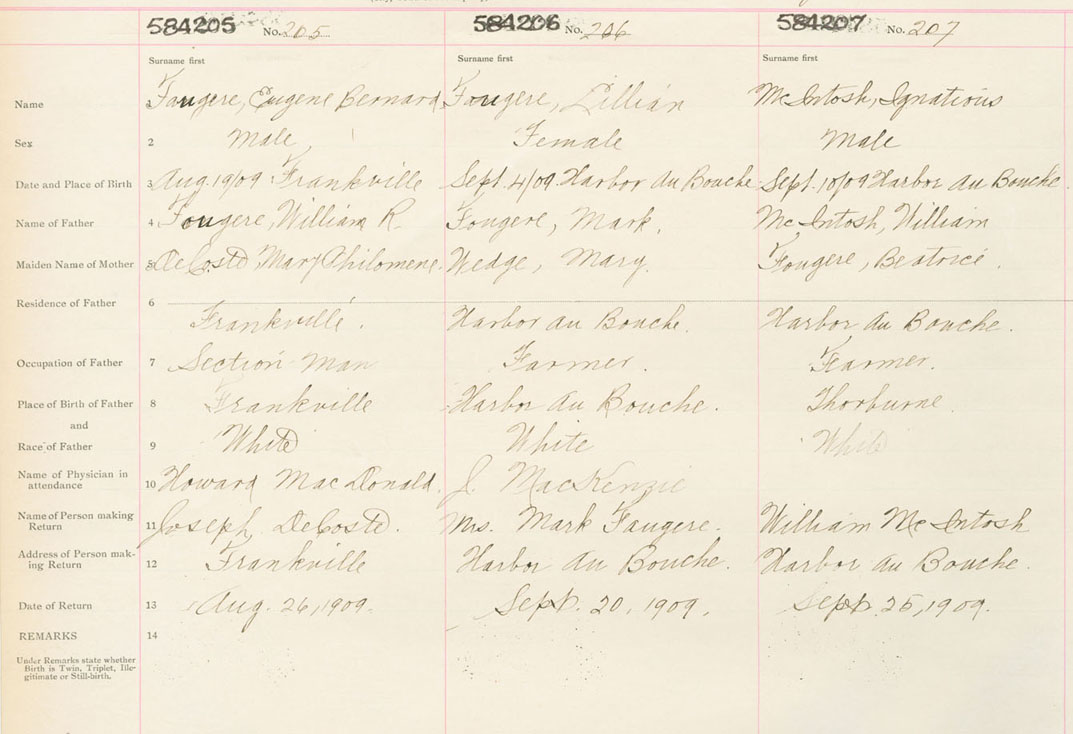 584205 No. 205 584206 No. 206 584207 No. 207
Surname first Surname first Surname first
Name 1 Fougere, Eugene Bernard Fougere, Lillian McIntosh, Ignatious
Sex 2 Male Female Male
Date and Place of Birth 3 Aug. 19/09 Frankville Sept. 4/09. Harbor au Bouche. Sept. 10/09 Harbor au Bouche.
Name of Father 4 Fougere, William R. Fougere, Mark. McIntosh, William
Maiden Name of Mother 5 DeCoste Mary Philomene. Wedge, Mary. Fougere, Beatrice.
Residence of Father 6 Frankville. Harbor au Bouche. Harbor au Bouche.
Occupation of Father 7 Section-Man Farmer. Farmer.
Place of Birth of Father 8 Frankville Harbor au Bouche. Thorburne.
and
Race of Father 9 White White White
Name of Physician in
attendance 10 Howard MacDonald. J. MacKenzie
Name of Person making
Return 11 Joseph DeCoste. Mrs. Mark Fougere. William McIntosh
Address of Person mak-
ing Return 12 Frankville Harbor au Bouche. Harbor au Bouche.
Date of Return 13 Aug. 26, 1909. Sept. 20, 1909. Sept. 25, 1909.
REMARKS 14
Under Remarks state whether
Birth is Twin, Triplet, Ille-
gitimate or Still-birth.